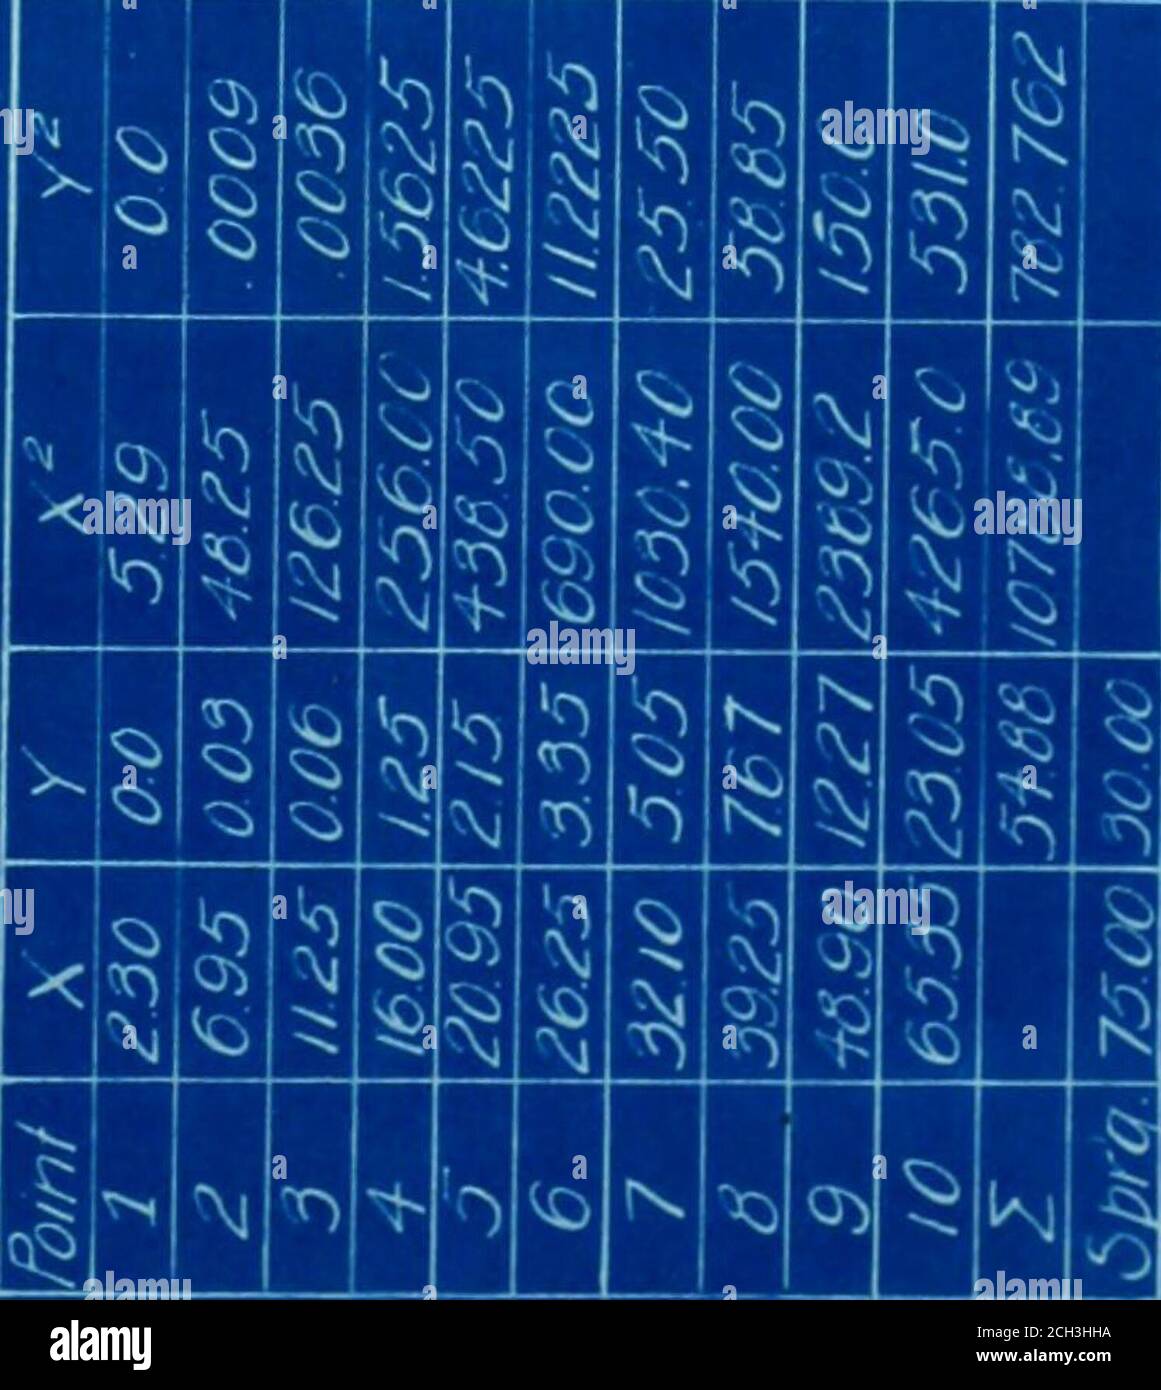 Point X Y X² Y²
1 2.30 0.0 5.29 0.0
2 6.95 0.03 48.25 .0009
3 11.25 0.06 126.25 .0036
4 16.00 1.25 256.00 1.5625
5 20.95 2.15 438.50 4.6225
6 26.25 3.35 690.00 11.2225
7 32.10 5.05 1030.40 25.50
8 39.25 7.67 1540.00 58.85
9 48.90 12.27 2389.2 150.0
10 65.35 23.05 4265.0 531.0
Σ 54.88 10788.89 782.762
Sprg. 75.00 30.00
alamy
Image ID: 2CH3HHA
www.alamy.com